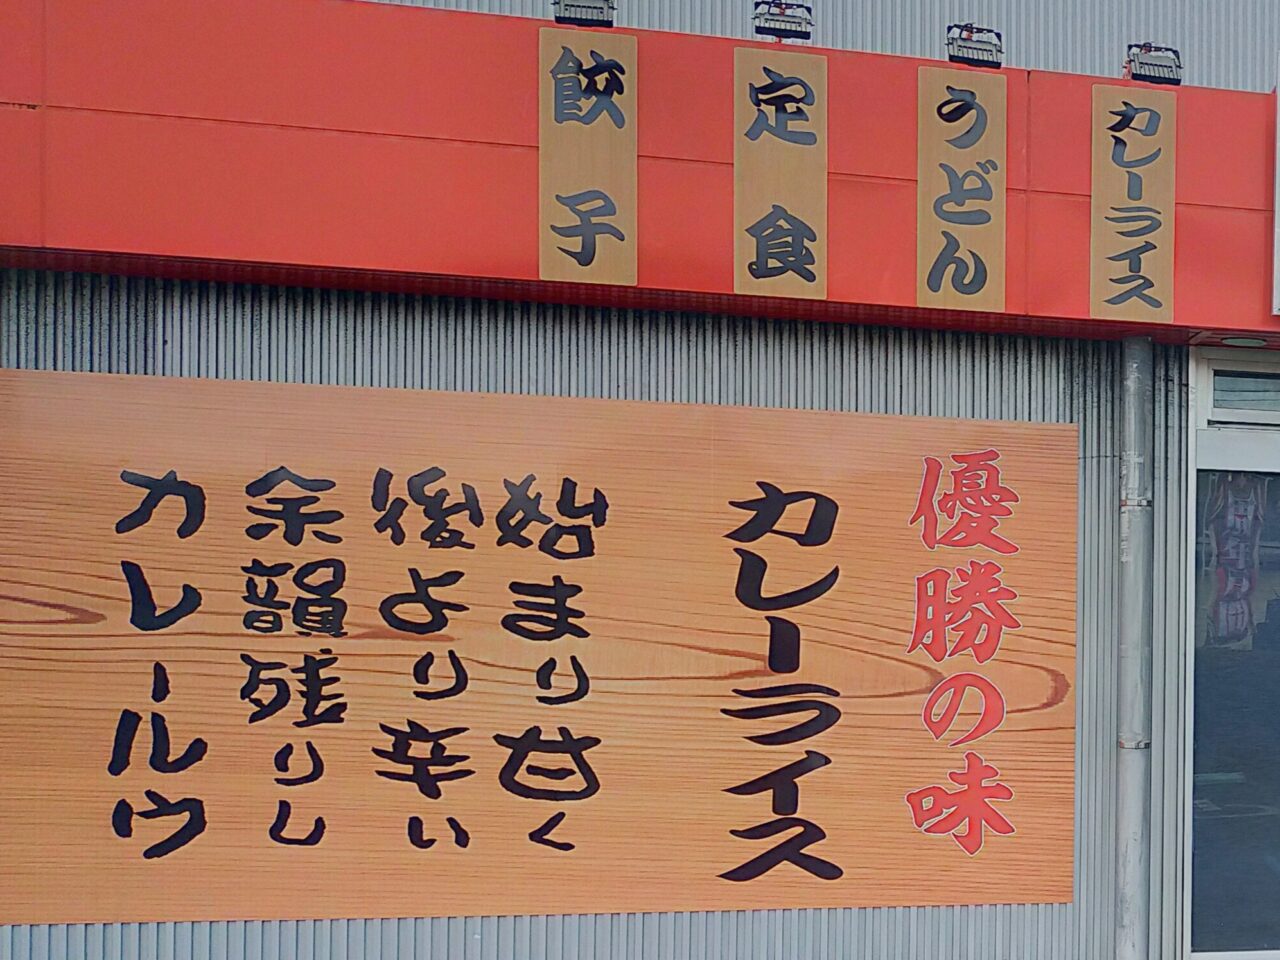 カレーライス
うどん
定食
餃子
優勝の味
カレーライス
始まり甘く
後より辛い
余韻残りし
カレールウ